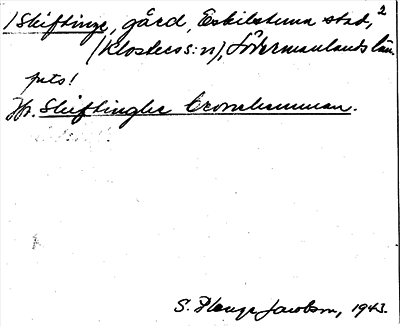 1 Skiftinge, gård, Eskilstuna stad, 2
(Klosters s:n), Södermanlands län
pets!
Jfr. Skiftinghe
S. Plenge Jacobson, 1943.